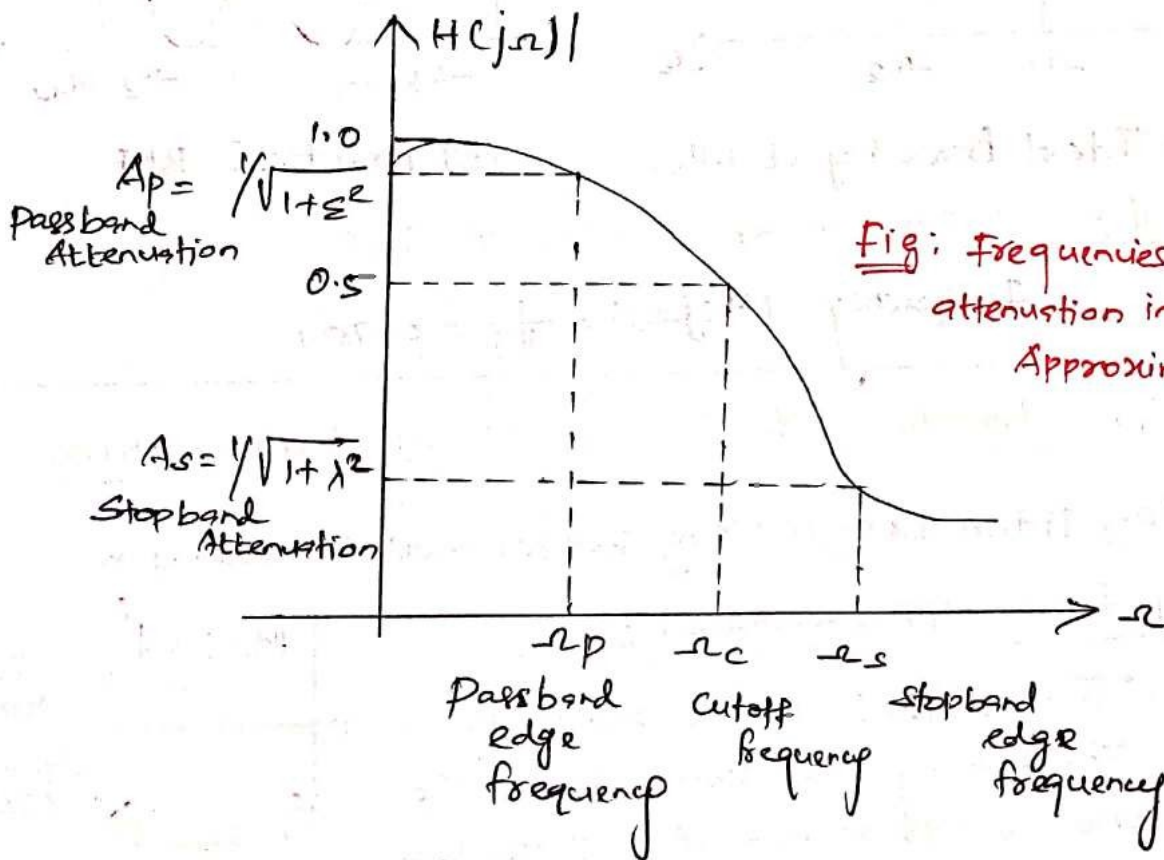 H(jΩ)|
1.0
Ap = 1/√1+ε²
Passband
Attenuation
0.5
As = 1/√1+λ²
Stopband
Attenuation
Fig: Frequencies
attenustion in
Ωp
Ωc
Ωs
Ω
Passband
edge
frequency
Cutoff
frequency
stopband
edge
frequency